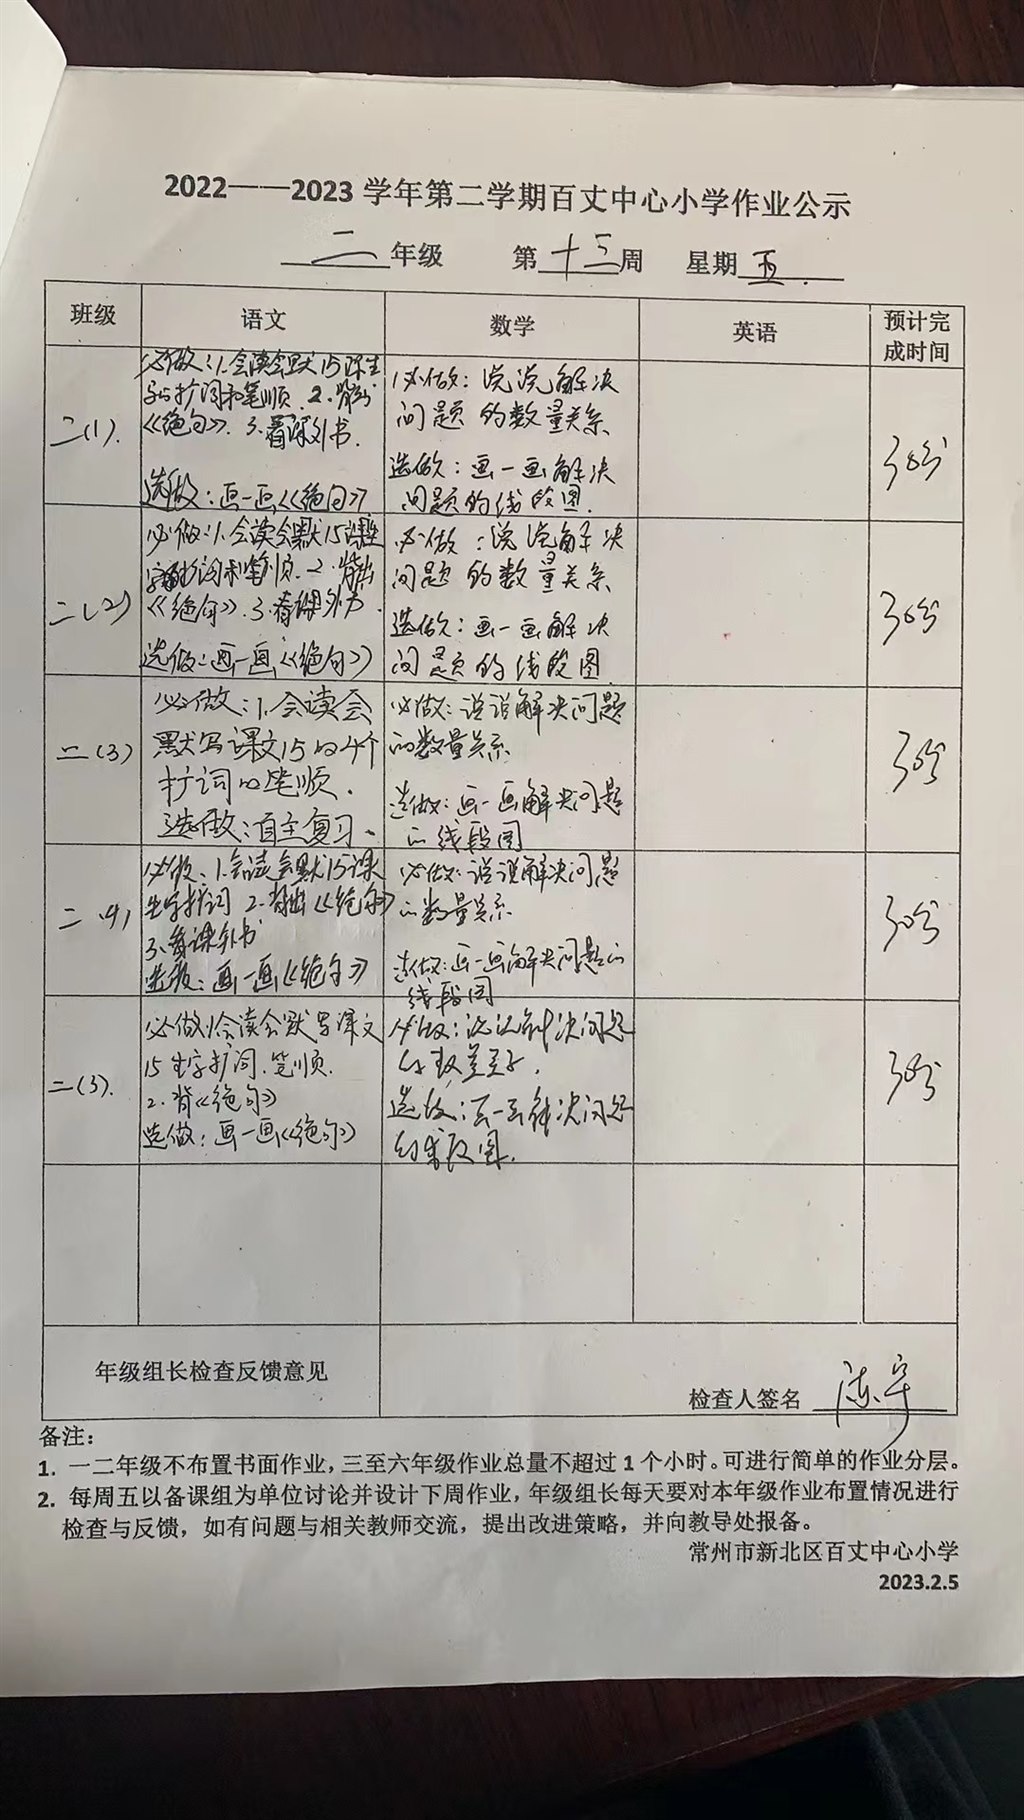 2022——2023 学年第二学期百丈中心小学作业公示
二 年级 第 十三 周 星期 五
班级 语文 数学 英语 预计完成时间
二(1).
必做:1.会读会默15课生
字的扩词和笔顺. 2.背
《绝句》. 3.看课外书.
选做:画一画《绝句》
必做:说说解决
问题的数量关系
选做:画一画解决
问题的线段图.
30分
二(2)
必做:1.会读会默15课生
字扩词和笔顺. 2.背出
《绝句》. 3.看课外书.
选做:画一画《绝句》
必做:说说解决
问题的数量关系
选做:画一画解决
问题的线段图
30分
二(3)
必做:1.会读会
默写课文15的4个
扩词的笔顺.
选做:自主复习.
必做:说说解决问题
的数量关系
选做:画一画解决问题
的线段图
30分
二(4)
必做:1.会读会默15课
生字扩词 2.背出《绝句》
3.看课外书
选做:画一画《绝句》
必做:说说解决问题
的数量关系
选做:画一画解决问题的
线段图
30分
二(3).
必做1.会读会默写课文
15生字扩词.笔顺.
2.背《绝句》
选做:画一画《绝句》
必做:说说解决问题
的数量关系.
选做:画一画解决问题
的线段图.
30分
年级组长检查反馈意见
检查人签名
备注:
1. 一二年级不布置书面作业,三至六年级作业总量不超过 1 个小时。可进行简单的作业分层。
2. 每周五以备课组为单位讨论并设计下周作业,年级组长每天要对本年级作业布置情况进行
检查与反馈,如有问题与相关教师交流,提出改进策略,并向教导处报备。
常州市新北区百丈中心小学
2023.2.5